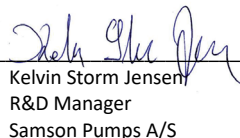 Kelvin Storm Jensen
R&D Manager
Samson Pumps A/S